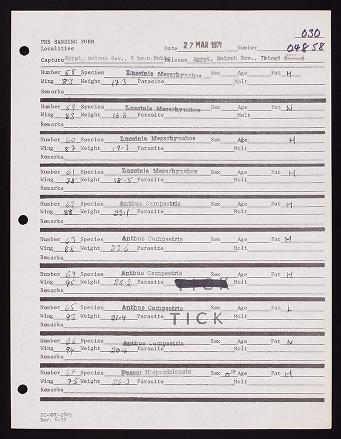 030
PMS BANDING FORM
Localities Date 27 MAR 1971 Number 04858
Capture Egypt, Matruh Gov., Release Egypt, Matruh Gov., Ikingi
Number 58 Species Luscinia Megarhynchos Sex Age Fat M
Wing 83 Weight Parasite Molt
Remarks
Number 59 Species Luscinia Megarhynchos Sex Age Fat N
Wing 83 Weight 16.8 Parasite Molt
Remarks
Number 60 Species Luscinia Megarhynchos Sex Age Fat M
Wing 83 Weight 19.1 Parasite Molt
Remarks
Number 61 Species Luscinia Megarhynchos Sex Age Fat
Wing 78 Weight 18.5 Parasite Molt
Remarks
Number 62 Species Anthus Campestris Sex Age Fat
Wing 88 Weight 22.1 Parasite Molt
Remarks
Number 63 Species Anthus Campestris Sex Age Fat M
Wing 88 Weight 23.6 Parasite Molt
Remarks
Number 64 Species Anthus Campestris Sex Age Fat M
Wing 95 Weight 25.2 Parasite TICK Molt
Remarks
Number 65 Species Anthus Campestris Sex Age Fat L
Wing 93 Weight 21.4 Parasite TICK Molt
Remarks
Number 66 Species Anthus Campestris Sex Age Fat N
Wing 84 Weight 20.6 Parasite Molt
Remarks
Number 67 Species Passer Hispaniolensis Sex ♂ Age Fat M
Wing 75 Weight 26.3 Parasite Molt
Remarks
Rev. 8-70